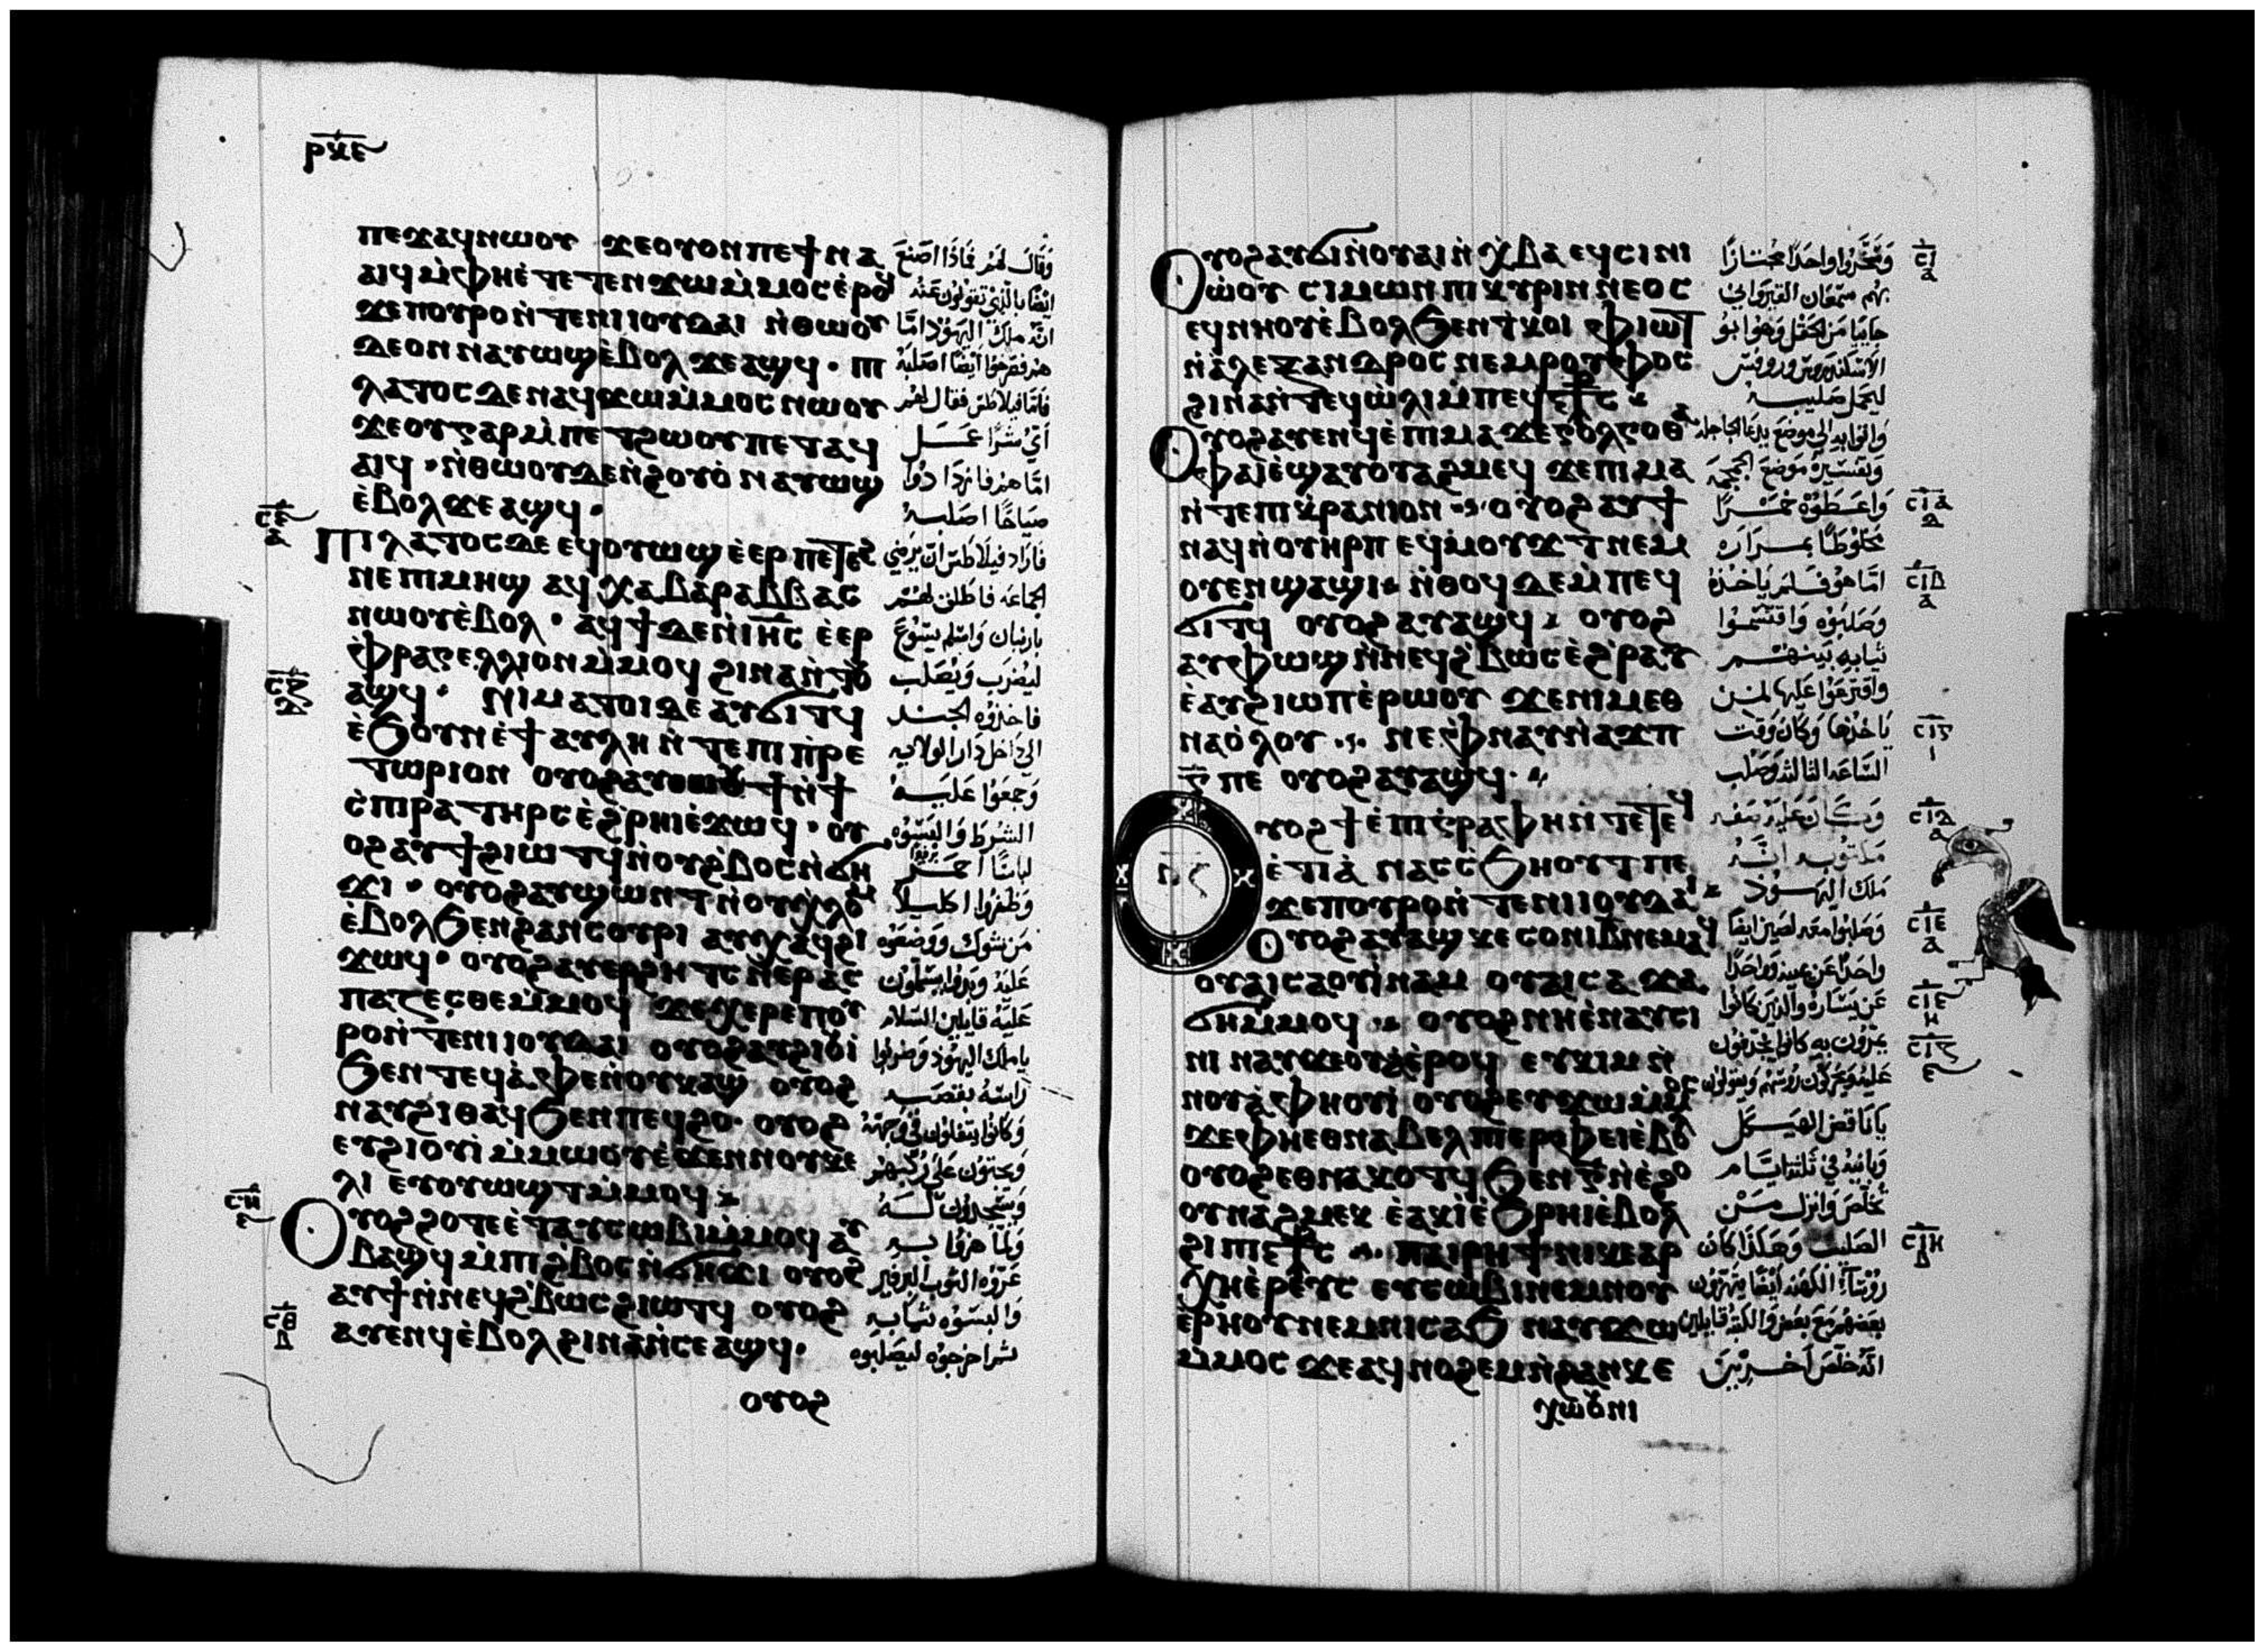 ⲣⲝⲉ
ⲡⲉϫⲁϥⲛⲱⲟⲩ ϫⲉⲟⲩⲟⲛⲡⲉϯⲛⲁ
ⲁⲓϥⲙ̀ⲫⲏⲉ̀ⲧⲉⲧⲉⲛϫⲱⲙ̀ⲙⲟⲥⲉ̀ⲣⲟϥ
ϫⲉⲡⲟⲩⲣⲟⲛ̀ⲧⲉⲛⲓⲓⲟⲩⲇⲁⲓ ⲛ̀ⲑⲱⲟⲩ
ⲇⲉⲟⲛ ⲛⲁⲩⲱϣⲉ̀ⲃⲟⲗ ϫⲉⲁϣϥ · ⲡⲓ
ⲗⲁⲧⲟⲥ ⲇⲉ ⲛⲁϥϫⲱⲙ̀ⲙⲟⲥ ⲛⲱⲟⲩ
ϫⲉⲟⲩⲅⲁⲣⲙ̀ⲡⲉⲧϩⲱⲟⲩⲡⲉⲧⲁϥ
ⲁⲓϥ · ⲛ̀ⲑⲱⲟⲩⲇⲉⲛ̀ϩⲟⲩⲟ̀ ⲛⲁⲩⲱϣ
ⲉ̀ⲃⲟⲗϫⲉⲁϣϥ ·
ⲡⲓⲗⲁⲧⲟⲥⲇⲉ ⲉϥⲟⲩⲱϣ ⲉ̀ⲉⲣ ⲡⲉⲧⲉϩ
ⲛⲉ ⲡⲓⲙⲏϣ ⲁϥ ⲭⲁⲃⲁⲣⲁⲃⲃⲁⲥ
ⲛⲱⲟⲩⲉ̀ⲃⲟⲗ · ⲁϥϯⲇⲉⲛ̀ⲓⲏⲥ ⲉ̀ⲉⲣ
ⲫⲣⲁⲅⲉⲗⲗⲓⲟⲛⲙ̀ⲙⲟϥ ϩⲓⲛⲁⲛ̀ⲧⲟⲩ
ⲁϣϥ · ⲛⲓⲙⲁⲧⲟⲓⲇⲉ ⲁⲩϭⲓⲧϥ
ⲉ̀ϧⲟⲩⲛⲉ̀ϯⲁⲩⲗⲏ ⲛ̀ⲧⲉⲡⲓⲡ̀ⲣⲉ
ⲧⲱⲣⲓⲟⲛ ⲟⲩⲟϩⲁⲩⲑⲱⲟⲩϯⲛ̀ϯ
ⲥ̀ⲡⲓⲣⲁ ⲧⲏⲣⲥ ⲉ̀ϩ̀ⲣⲏⲓⲉ̀ϫⲱϥ · ⲟⲩ
ⲟϩⲁⲩϯϩⲓⲱⲧϥⲛ̀ⲟⲩϩ̀ⲃⲟⲥⲛ̀ϭⲏ
ϫⲓ · ⲟⲩⲟϩⲁⲩϣⲱⲛⲧⲛ̀ⲟⲩⲭ̀ⲗⲟⲙ
ⲉ̀ⲃⲟⲗϧⲉⲛϩⲁⲛⲥⲟⲩⲣⲓ ⲁⲩⲭⲁϥϩⲓ
ϫⲱϥ · ⲟⲩⲟϩⲁⲩⲉⲣϩⲏⲧⲥ ⲛ̀ⲉⲣⲁⲥ
ⲡⲁⲍⲉⲥⲑⲉⲙ̀ⲙⲟϥ ϫⲉⲭⲉⲣⲉⲡⲟⲩ
ⲣⲟⲛ̀ⲧⲉⲛⲓⲓⲟⲩⲇⲁⲓ ⲟⲩⲟϩⲁⲩϩⲓⲟⲩⲓ
ϧⲉⲛⲧⲉϥⲁ̀ⲫⲉⲛ̀ⲟⲩⲕⲁϣ ⲟⲩⲟϩ
ⲛⲁⲩϩⲓⲑⲁϥϧⲉⲛⲡⲉϥϩⲟ · ⲟⲩⲟϩ
ⲉⲩϩⲓⲟⲩⲓ̀ ⲙ̀ⲙⲱⲟⲩⲉ̀ϫⲉⲛⲛⲟⲩⲕⲉ
ⲗⲓ ⲉⲩⲟⲩⲱϣⲧⲙ̀ⲙⲟϥ
ⲟⲩⲟϩϩⲟⲧⲉⲉ̀ⲧⲁⲩⲥⲱⲃⲓⲙ̀ⲙⲟϥ ⲁⲩ
ⲃⲁϣϥⲙ̀ⲡⲓϩ̀ⲃⲟⲥⲛ̀ϭⲏϫⲓ ⲟⲩⲟϩ
ⲁⲩϯⲛ̀ⲛⲉϥϩ̀ⲃⲱⲥϩⲓⲱⲧϥ ⲟⲩⲟϩ
ⲁⲩⲉⲛϥⲉ̀ⲃⲟⲗϩⲓⲛⲁⲛ̀ⲥⲉⲁϣϥ ·
ⲟⲩⲟϩ
وقال لهم فماذا اصنع
ايضا بالذي تقولون عنه
انه ملك اليهود اما
هم فصرخوا ايضا اصلبه
فاما فيلاطس فقال لهم
اي شرا عمل
اما هم فازدادوا
صياحا اصلبه
فاراد فيلاطس ان يرضي
الجماعه فاطلق لهم
باربان واسلم يسوع
ليضرب ويصلب
فاخذوه الجند
الي داخل دار الولايه
وجمعوا عليه
الشرط والبسوه
لباسا احمر
وظفروا اكليلا
من شوك ووضعوه
عليه وبدوا يسلمون
عليه قايلين السلام
يا ملك اليهود وضربوا
راسه بقصبه
وكانوا يتفلون في وجهه
ويجثون علي ركبهم
ويسجدون له
ولما هزوا به
عروه الثوب البرفير
والبسوه ثيابه
ثم اخرجوه ليصلبوه
ⲥⲉ
ⲁ
ⲥⲍ
ⲇ
ⲥⲏ
ⲥⲑ
ⲟⲩⲟϩⲁⲩϭⲓⲛ̀ⲟⲩⲁⲓⲛ̀ⲭ̀ⲃⲁ ⲉϥⲥⲓⲛⲓ
ⲙ̀ⲙⲱⲟⲩ ⲥⲓⲙⲱⲛ ⲡⲓⲕⲩⲣⲓⲛⲛⲉⲟⲥ
ⲉϥⲛⲏⲟⲩⲉ̀ⲃⲟⲗϧⲉⲛⲧⲕⲟⲓ ⲫ̀ⲓⲱⲧ
ⲛ̀ⲁ̀ⲗⲉⲝⲁⲛⲇⲣⲟⲥ ⲛⲉⲙⲣⲟⲩⲫⲟⲥ
ϩⲓⲛⲁⲛ̀ⲧⲉϥⲱ̀ⲗⲓⲙ̀ⲡⲉϥⲥ̀ⲧⲥ
ⲟⲩⲟϩⲁⲩⲉⲛϥⲉ̀ⲡⲓⲙⲁ ϫⲉⲅⲟⲗⲅⲟⲑⲁ
ⲫⲁⲓⲉ̀ϣⲁⲩⲟⲩⲁϩⲙⲉϥ ϫⲉⲡⲓⲙⲁ
ⲛ̀ⲧⲉⲡⲓⲕⲣⲁⲛⲓⲟⲛ ⲟⲩⲟϩⲁⲩϯ
ⲛⲁϥⲛ̀ⲟⲩⲏⲣⲡ ⲉϥⲙⲟⲩϫⲧ ⲛⲉⲙ
ⲟⲩⲉⲛϣⲁϣⲓ ⲛ̀ⲑⲟϥ ⲇⲉⲙ̀ⲡⲉϥ
ϭⲓⲧϥ ⲟⲩⲟϩⲁⲩⲁϣϥ ⲟⲩⲟϩ
ⲁⲩⲫⲱϣ ⲛ̀ⲛⲉϥϩ̀ⲃⲱⲥⲉ̀ϩ̀ⲣⲁⲩ
ⲉ̀ⲁⲩϩⲓⲱⲡⲉ̀ⲣⲱⲟⲩ ϫⲉⲛⲓⲙⲉⲑ
ⲛⲁⲟ̀ⲗⲟⲩ ⲛⲉⲫ̀ⲛⲁⲩⲛ̀ⲁϫⲡ
ⲅ̅ ⲡⲉ ⲟⲩⲟϩⲁⲩⲁϣϥ
ⲟⲩⲟϩϯⲉ̀ⲡⲓⲅ̀ⲣⲁⲫⲏ ⲛ̀ⲧⲉⲧⲉϥ
ⲉ̀ⲧⲓⲁ̀ ⲛⲁⲥⲥ̀ϧⲏⲟⲩⲧⲡⲉ
ϫⲉⲡⲟⲩⲣⲟⲛ̀ⲧⲉⲛⲓⲓⲟⲩⲇⲁⲓ
ⲟⲩⲟϩⲁⲩⲁϣ ⲕⲉⲥⲟⲛⲓⲃ̅ⲛⲉⲙⲁϥ
ⲟⲩⲁⲓⲥⲁⲟⲩⲓ̀ⲛⲁⲙ ⲟⲩⲁⲓⲥⲁϫⲁ
ϭⲏⲙ̀ⲙⲟϥ ⲟⲩⲟϩⲛⲏⲉ̀ⲛⲁⲩⲥⲓ
ⲛⲓ ⲛⲁⲩϫⲉⲟⲩⲁ̀ⲉ̀ⲣⲟϥ ⲉⲩⲕⲓⲙ ⲛ̀
ⲛⲟⲩⲁ̀ⲫⲏⲟⲩⲓ̀ ⲟⲩⲟϩⲉⲩϫⲱⲙ̀ⲙⲟⲥ
ϫⲉⲫⲏⲉⲑⲛⲁⲃⲉⲗ ⲡⲓⲉⲣⲫⲉⲓⲉ̀ⲃⲟⲗ
ⲟⲩⲟϩⲉⲑⲛⲁⲕⲟⲧϥ ϧⲉⲛⲅ̅ⲛ̀ⲉ̀ϩⲟⲟⲩ
ⲟⲩⲛⲁϩⲙⲉⲕ ⲉ̀ⲁⲕⲓ̀ⲉ̀ϧⲣⲏⲓⲉ̀ⲃⲟⲗ
ϩⲓⲡⲓⲥ̀ⲧⲥ ⲡⲁⲓⲣⲏϯ ⲛⲓⲕⲉⲁⲣ
ⲭⲏⲉ̀ⲣⲉⲩⲥ ⲉⲩⲥⲱⲃⲓⲛⲉⲙⲛⲟⲩ
ⲉ̀ⲣⲏⲟⲩ ⲛⲉⲙⲛⲓⲥⲁϧ ⲛⲁⲩϫⲱ
ⲙ̀ⲙⲟⲥ ϫⲉⲁϥⲛⲟϩⲉⲙⲛ̀ϩⲁⲛⲕⲉ
ⲭⲱⲟⲩⲛⲓ
ⲛⲍ
وسخروا واحدا مجتازا
بهم سمعان القيرواني
جاييا من الحقل وهو ابو
الاسكندروس وروفس
ليحمل صليبه
واتوا به الي موضع يدعا الجاجله
وتفسيره موضع الجمجمه
واعطوه خمرا
مخلوطا بمراره
اما هو فلم ياخذه
وصلبوه واقتسموا
ثيابه بينهم
واقترعوا عليها لمن
ياخذها وكان وقت
الساعه الثالثه وصلب
وكان عليه بعنه
مكتوبه انه
ملك اليهود
وصلبوا معه لصين ايضا
واحدا عن يمينه وواحدا
عن يساره والذين كانوا
يمرون به كانوا يجدفون
عليه ويحركون رووسهم ويقولون
يا ناقض الهيكل
وبانيه في ثلثه ايام
تخلص وانزل من
الصليب وهكذا كان
روسآء الكهنه ايضا يتهزون
بعضهم مع بعض والكتبه قايلين
انه خلص اخرين
ⲥⲓ
ⲁ
ⲥⲓⲁ
ⲇ
ⲥⲓⲃ
ⲁ
ⲥⲓⲅ
ⲓ
ⲥⲓⲇ
ⲁ
ⲥⲓⲉ
ⲁ
ⲥⲓⲉ
ⲏ
ⲥⲓⲋ
ⲉ
ⲥⲓⲏ
ⲃ